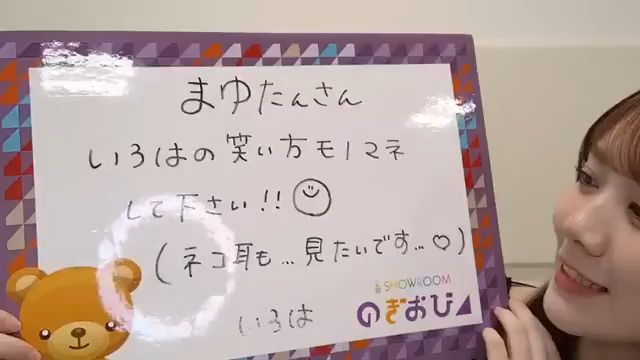 まゆたんさん
いろはの笑い方モノマネ
して下さい!!
(ネコ耳も...見たいです...♡)
いろは
SHOWROOM
のぎおび